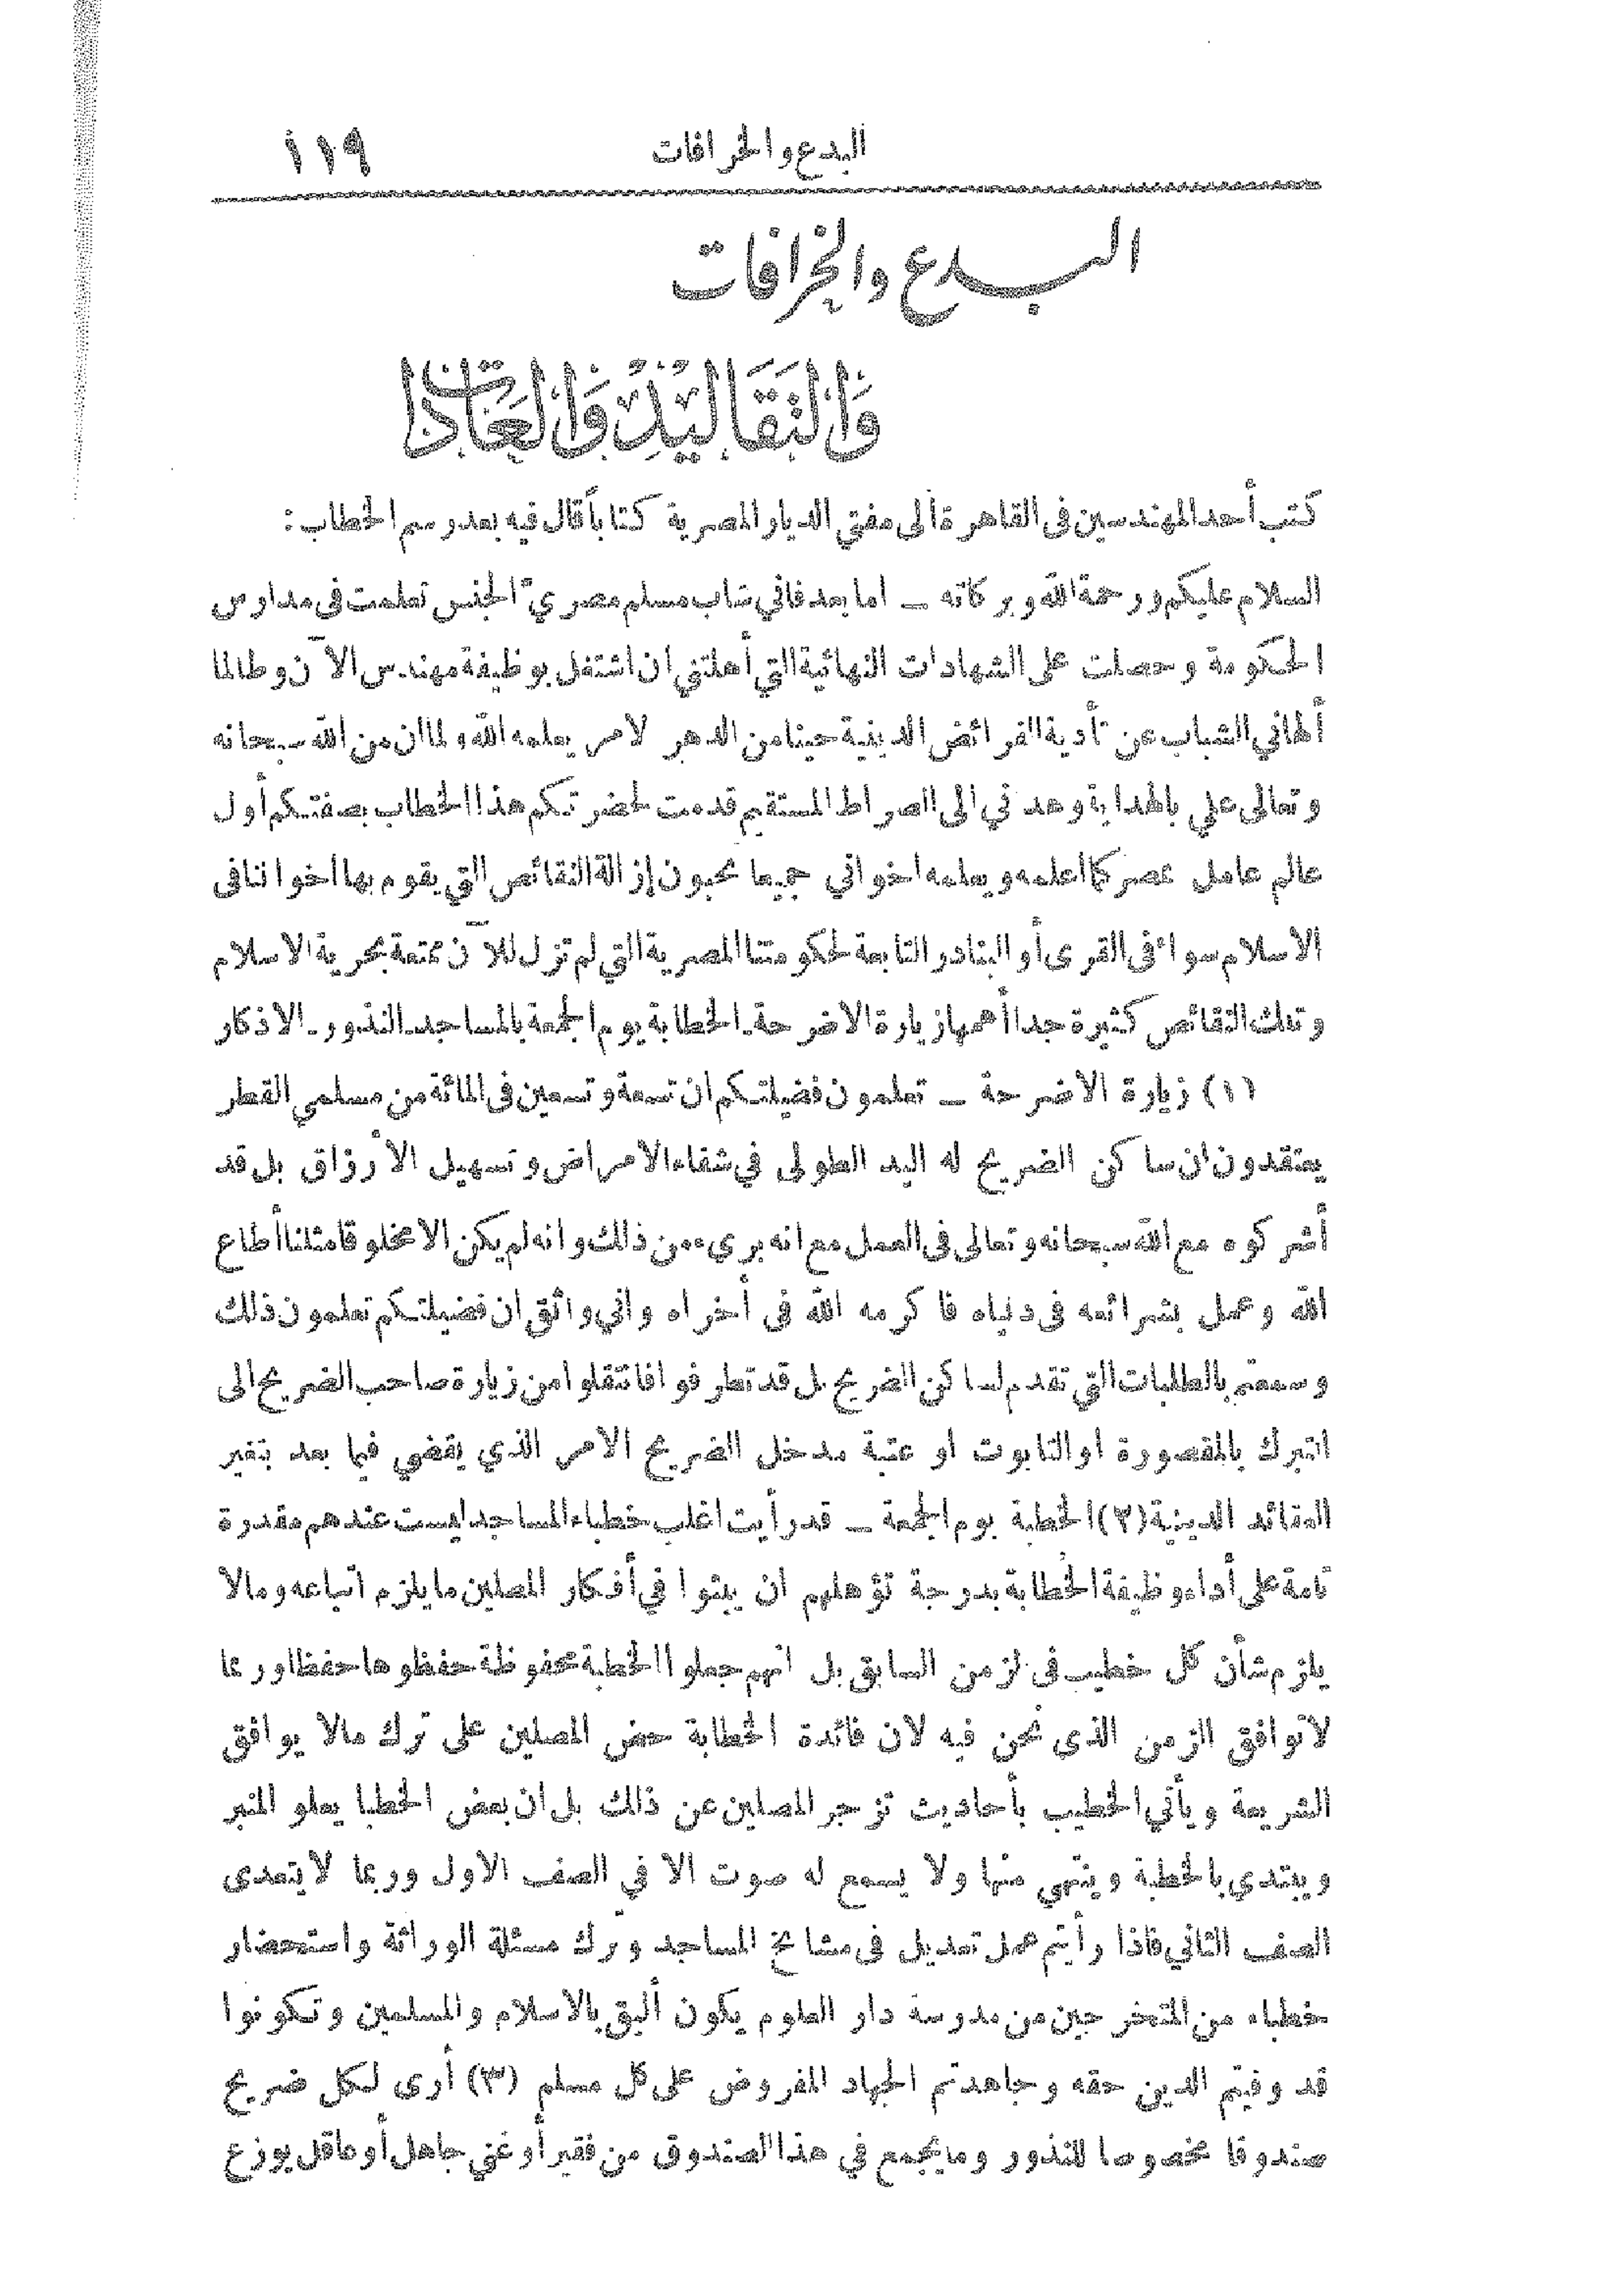 البدع والخرافات ١١٩
البدع والخرافات
والتقاليد والعادات
كتب أحد المهندسين فى القاهرة الى مفتي الديار المصرية كتاباً قال فيه بعد رسم الخطاب :
السلام عليكم ورحمة الله وبركاته ــ اما بعد فاني شاب مسلم مصريّ الجنس تعلمت فى مدارس
الحكومة وحصلت على الشهادات النهائية التي أهلتني ان اشتغل بوظيفة مهندس الآن وطالما
ألهاني الشباب عن تأدية الفرائض الدينية حينا من الدهر لامر يعلمه الله ولما ان من الله سبحانه
وتعالى علي بالهداية وهداني الى الصراط المستقيم قدمت لحضرتكم هذا الخطاب بصفتكم أول
عالم عامل عصركما أعلمه ويعلمه اخواني جميعا تحبون إزالة النقائص التي يقوم بها اخواننا فى
الاسلام سواء فى القرى أو البنادر التابعة لحكومتنا المصرية التي لم تزل للآن ممتعة بحرية الاسلام
وتلك النقائص كثيرة جدا أهمها زيارة الاضرحة ـ الخطابة يوم الجمعة بالمساجد ـ النذور ـ الاذكار
(١) زيارة الاضرحة ــ تعلمون فضيلتكم ان تسعة وتسعين فى المائة من مسلمي القطر
يعتقدون ان ساكن الضريح له اليد الطولى في شفاء الامراض وتسهيل الأرزاق بل قد
أشركوه مع الله سبحانه وتعالى فى العمل مع انه بريء من ذلك وانه لم يكن الا مخلوقا مثلنا أطاع
الله وعمل بشرائعه فى دنياه فاكرمه الله فى أخراه واني واثق ان فضيلتكم تعلمون ذلك
وسمعتم بالطلبات التي تقدم لساكن الضريح بل قد تطرفوا فانتقلوا من زيارة صاحب الضريح الى
التبرك بالمقصورة او التابوت او عتبة مدخل الضريح الامر الذي يقضي فيما بعد بتغير
العقائد الدينية (٢) الخطبة يوم الجمعة ــ قد رأيت اغلب خطباء المساجد ليست عندهم مقدرة
تامة على أداء وظيفة الخطابة بدرجة تؤهلهم ان يبثوا في أفكار المصلين ما يلزم اتباعه ومالا
يلزم شأن كل خطيب فى الزمن السابق بل انهم جعلوا الخطبة محفوظة حفظوها حفظا وربما
لاتوافق الزمن الذى نحن فيه لان فائدة الخطابة حض المصلين على ترك مالا يوافق
الشريعة ويأتي الخطيب بأحاديث تزجر المصلين عن ذلك بل ان بعض الخطبا يعلو المنبر
ويبتدي بالخطبة وينتهي منها ولا يسمع له صوت الا في الصف الاول وربما لا يتعدى
الصف الثاني فاذا رأيتم عمل تعديل فى مشايخ المساجد وترك مسئلة الوراثة واستحضار
خطباء من المتخرجين من مدرسة دار العلوم يكون أليق بالاسلام والمسلمين وتكونوا
قد وفيتم الدين حقه وجاهدتم الجهاد المفروض على كل مسلم (٣) أرى لكل ضريح
صندوقا مخصوصا للنذور وما يجمع في هذا الصندوق من فقير أو غني جاهل أو عاقل يوزع